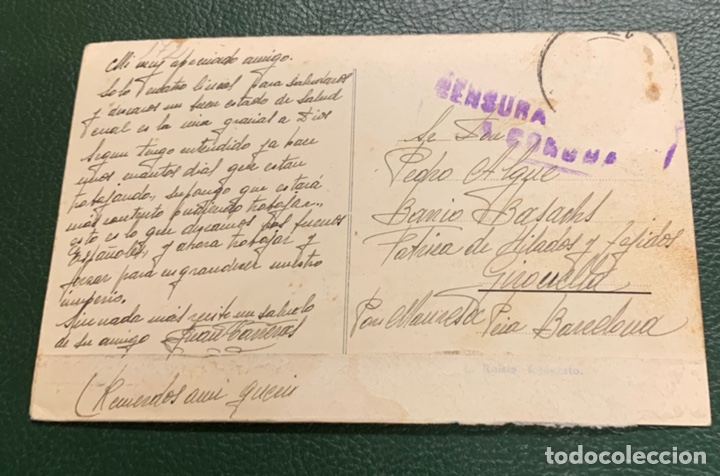 Mi muy apreciado amigo.
Solo cuatro lineas para saludaros
y deciaros un buen estado de salud
cual es la mia gracias a Dios
Segun tengo entendido ya hace
unos cuantos dias que estan
trabajando, supongo que estará
mas contento pudiendo trabajar,
esto es lo que decamos los buenos
Españoles, y ahora trabajar y
para engrandecer nuestro
imperio.
Sin nada mas recibe un saludo
de su amigo Juan
(Recuerdos a mi
CENSURA
CORUÑA
Sr Don
Pedro Algue
Barrio Basachs
Fabrica de Hilados y Tejidos
Gironella
Por Manresa Pcia Barcelona
todocoleccion
todocoleccion.net